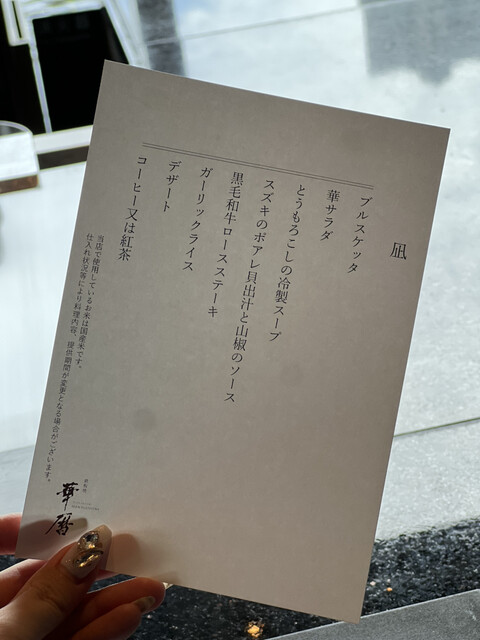 凪
ブルスケッタ
華サラダ
とうもろこしの冷製スープ
スズキのポアレ貝出汁と山椒のソース
黒毛和牛ロースステーキ
ガーリックライス
デザート
コーヒー又は紅茶
当店で使用しているお米は国産米です。
仕入れ状況等により料理内容、提供期間が変更となる場合がございます。
鉄板焼
華暦